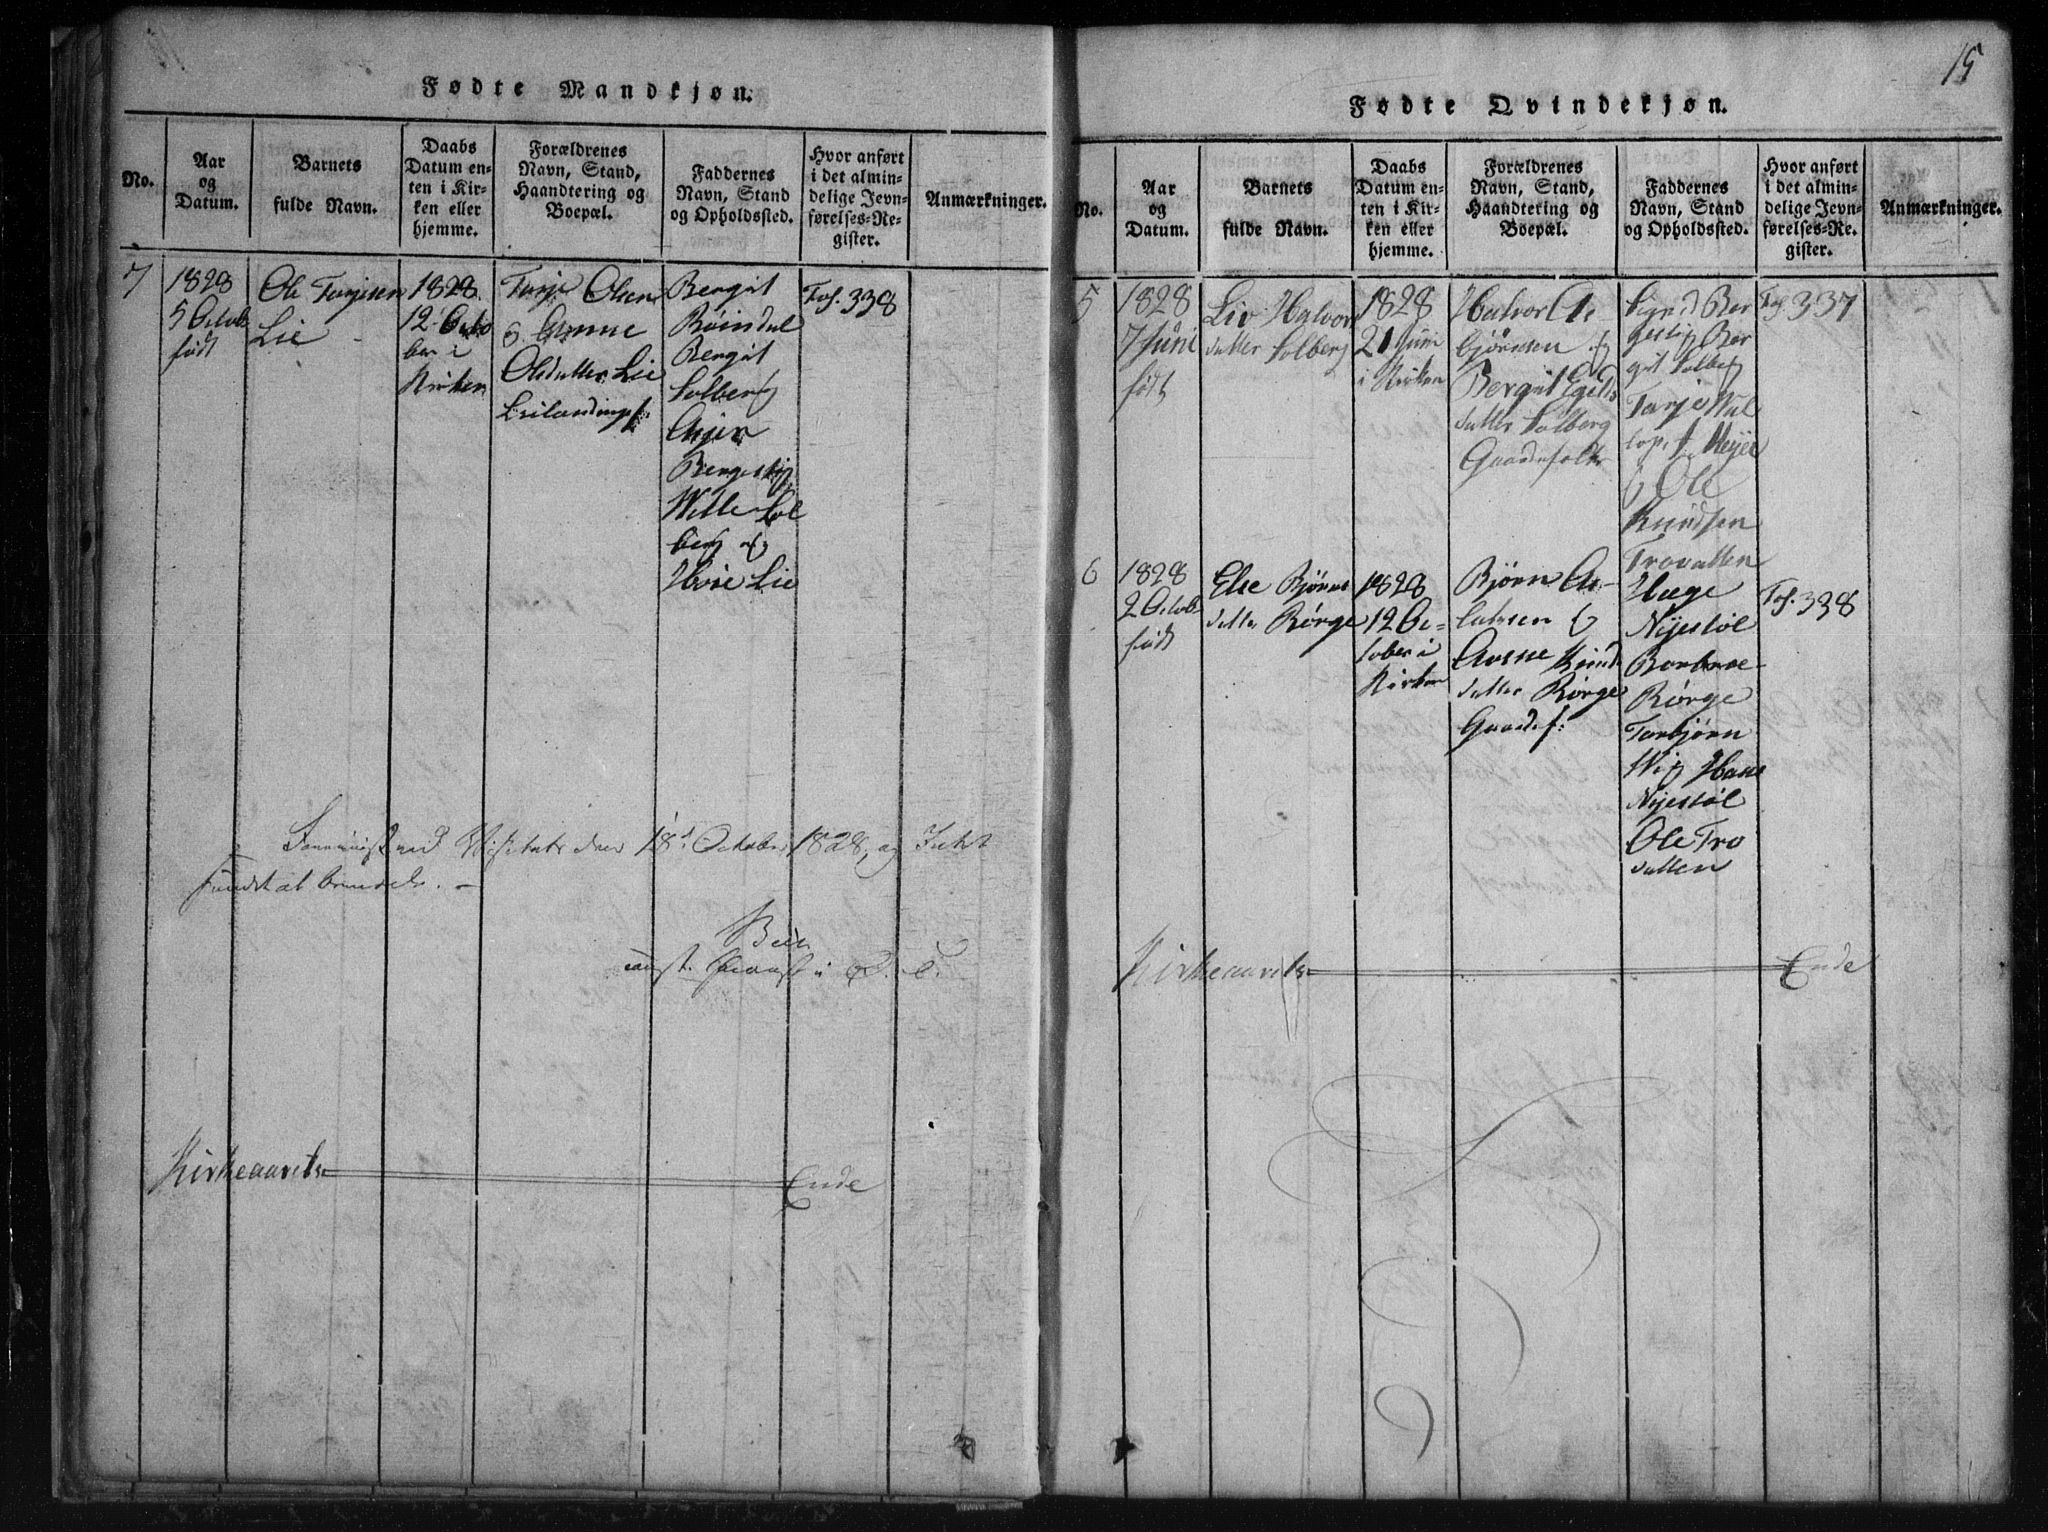 Fødte Mandkjøn.
No.
Aar
og
Datum.
Barnets
fulde Navn.
Daabs
Datum en-
ten i Kir-
ken eller
hjemme.
Forældrenes
Navn, Stand,
Haandtering og
Boepæl.
Faddernes
Navn, Stand
og Opholdssted.
Hvor anført
i det almin-
delige Jevn-
førelses-Re-
gister.
Anmærkninger.
7
1828
5 Octob.
født
Ole Tarjesen
Lie
1828.
12 Octo
ber i
Kirken
Tarje Olsen
& Anne
Olsdatter Lie
Leilændingsf:
Bergit
Røindal
Bergit
Solberg
Asjer
Bergestig
Wille Sol
berg og
Hoie Lie
Fol. 338
ved Visitats den 18d October 1828, og Intet
fundet at bemærke. -
Kirkeaarets
Ende
15
Fødte Qvindekjøn.
No.
Aar
og
Datum.
Barnets
fulde Navn.
Daabs
Datum en-
ten i Kir-
ken eller
hjemme.
Forældrenes
Navn, Stand,
Haandtering og
Boepæl.
Faddernes
Navn, Stand
og Opholdssted.
Hvor anført
i det almin-
delige Jevn-
førelses-Re-
gister.
Anmærkninger.
5
1828
7 Juni
født
Liv Halvors
datter Solberg
1828
21 Juni
i Kirken
Halvor As-
bjørnsen &
Bergit Egilds
datter Solberg
Gaardefolk
Sigrid Ber
gestig Ber
git Solberg
Tarje Wal
lop
& Ole
Knudsen
Trovatten
Fol. 337
6
1828
2 Octob.
født
Else Bjørns
datter Rørge
1828
12 Oc-
tober i
Kirken
Bjørn As-
laksen &
Anne Knuds
datter Rørge
Gaardef:
Hæge
Nyestøl
Barbroe
Rørge
Torbjørn
Wig Hans
Nyestøl
Ole Tro
vatten
Fol. 338
Kirkeaarets
Ende